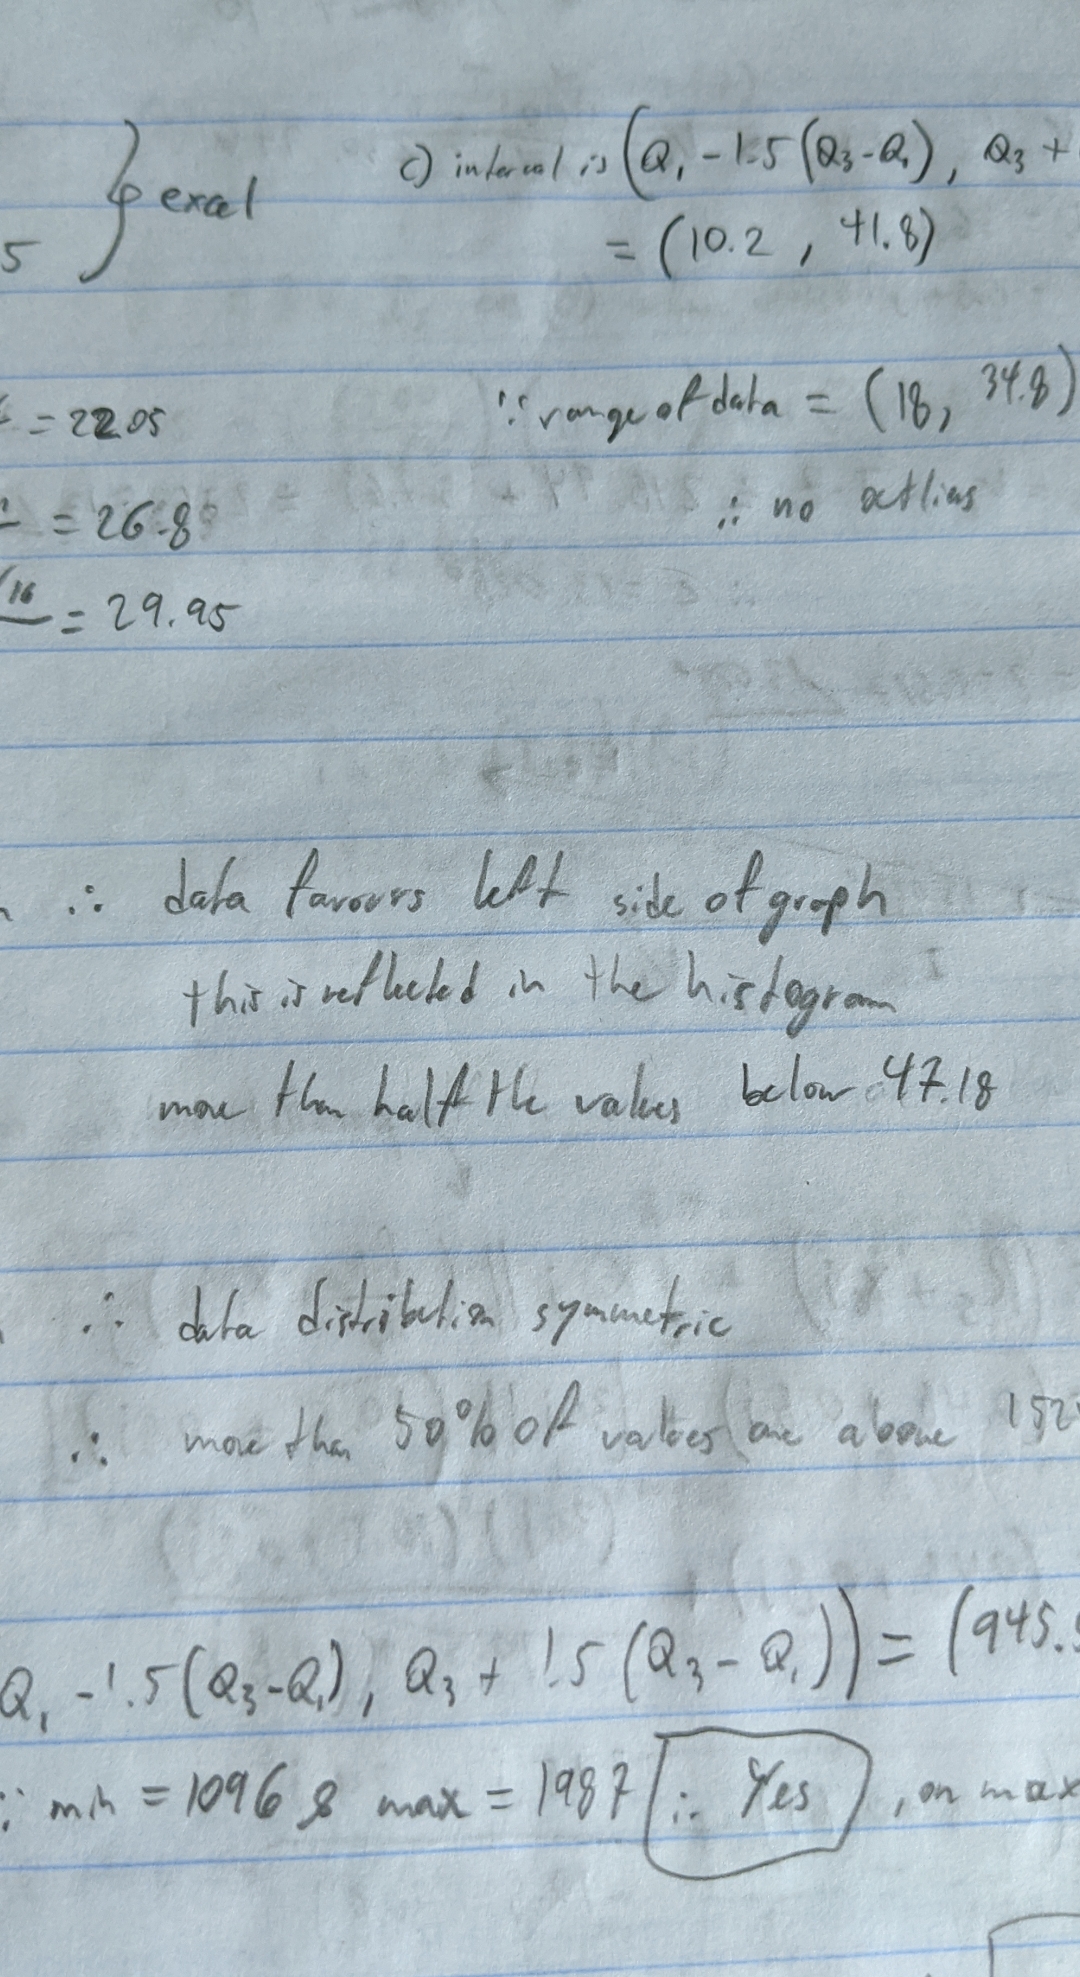 } excel
c) interval is (Q₁ - 1.5(Q₃-Q₁), Q₃ +
5
= (10.2, 41.8)
= 22.05
∵ range of data = (18, 34.8)
= 26.8
∴ no outliers
/16 = 29.95
∴ data favours left side of graph
this is reflected in the histogram
more than half the values below 47.18
∴ data distribution symmetric
∴ more than 50% of values are above 152
Q₁ - 1.5(Q₃-Q₁), Q₃ + 1.5(Q₃-Q₁)) = (945.
∵ min = 1096 & max = 1987 ∴ Yes, on max